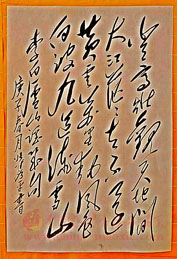 登高壮观天地间
大江茫茫去不还
黄云万里动风色
白波九道流雪山
李白庐山谣节句